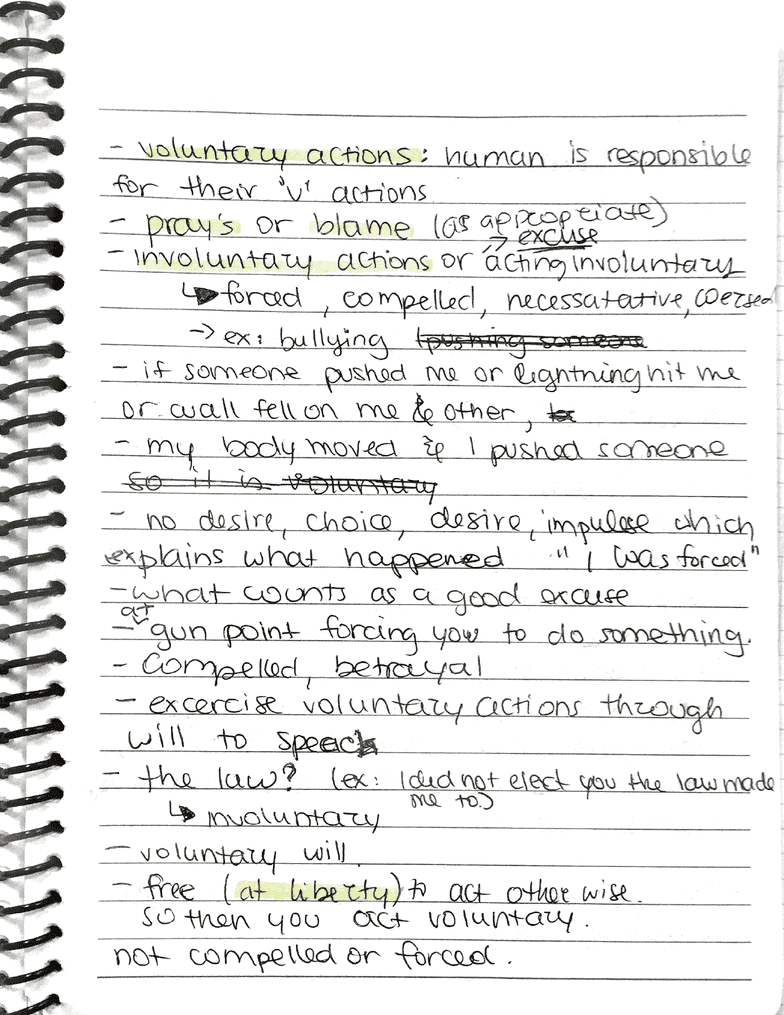 - voluntary actions: human is responsible
for their "v" actions
- pray's or blame (as appropriate)
→ excuse
- involuntary actions or acting involuntary
↳ forced, compelled, necessatative, coersed
→ ex: bullying (pushing someone
- if someone pushed me or lightning hit me
or wall fell on me & other,
- my body moved & I pushed someone
so it is voluntary
- no desire, choice, desire, impulse which
explains what happened "I was forced"
- what counts as a good excuse
at
- gun point forcing you to do something.
- Compelled, betrayal
- excercise voluntary actions through
will to speack
- the law? (ex: I did not elect you the law made
me to.)
↳ nvoluntary
- voluntary will.
- free (at liberty) to act other wise.
so then you act voluntary.
not compelled or forced.